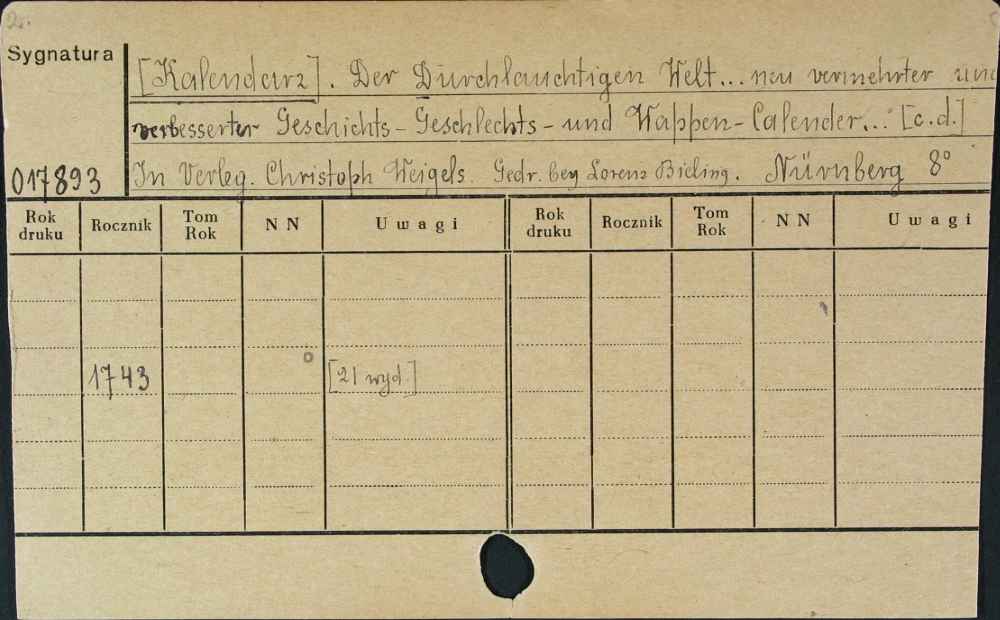 2.
Sygnatura
[Kalendarz]. Der Durchlauchtigen Welt... neu vermehrter und
verbesserter Geschichts-Geschlechts- und Wappen-Calender... [c.d.]
017893 In Verleg. Christoph Weigels. Gedr. bey Lorenz Bieling. Nürnberg 8°
Rok druku Rocznik Tom Rok N N Uwagi Rok druku Rocznik Tom Rok N N Uwagi
1743 [21 wyd.]